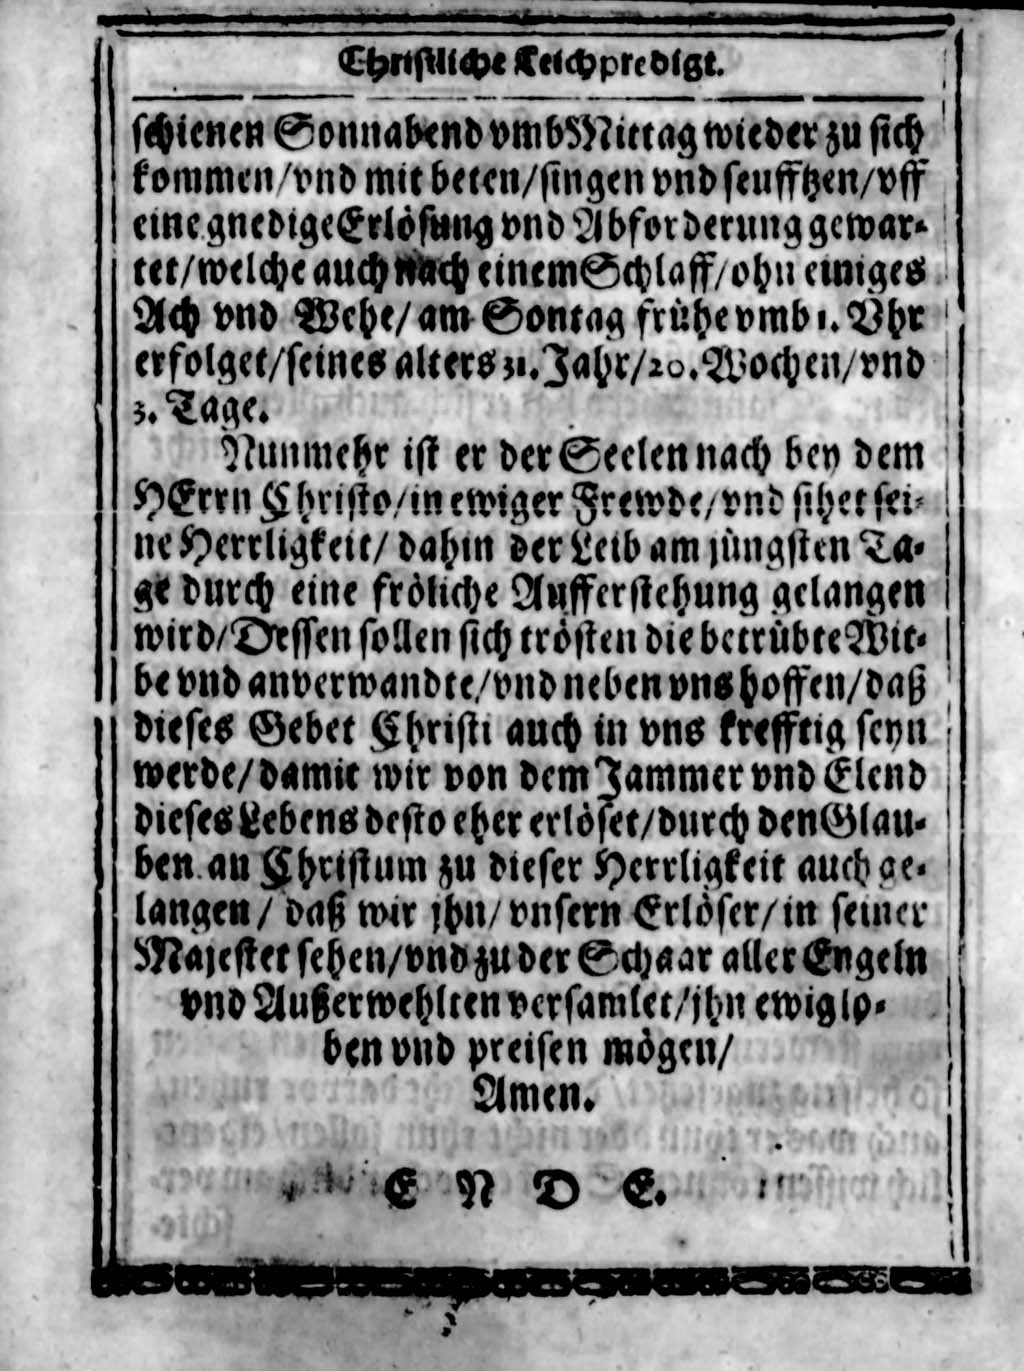 Christliche Leichpredigt.
schienen Sonnabend vmb Mittag wieder zu sich
kommen/vnd mit beten/singen vnd seufftzen/vff
eine gnedige Erlösung vnd Abforderung gewar-
tet/welche auch nach einem Schlaff/ohn einiges
Ach vnd Wehe/am Sontag frühe vmb 1. Vhr
erfolget/seines alters 31. Jahr/20. Wochen/vnd
3. Tage.
Nunmehr ist er der Seelen nach bey dem
HErrn Christo/in ewiger Frewde/vnd sihet sei-
ne Herrligkeit/dahin der Leib am jüngsten Ta-
ge durch eine fröliche Aufferstehung gelangen
wird/Dessen sollen sich trösten die betrübte Wit-
be vnd anverwandte/vnd neben vns hoffen/daß
dieses Gebet Christi auch in vns krefftig seyn
werde/damit wir von dem Jammer vnd Elend
dieses Lebens desto eher erlöset/durch den Glau-
ben an Christum zu dieser Herrligkeit auch ge-
langen/daß wir jhn/vnsern Erlöser/in seiner
Majestet sehen/vnd zu der Schaar aller Engeln
vnd Außerwehlten versamlet/jhn ewig lo-
ben vnd preisen mögen/
Amen.
E N D E.